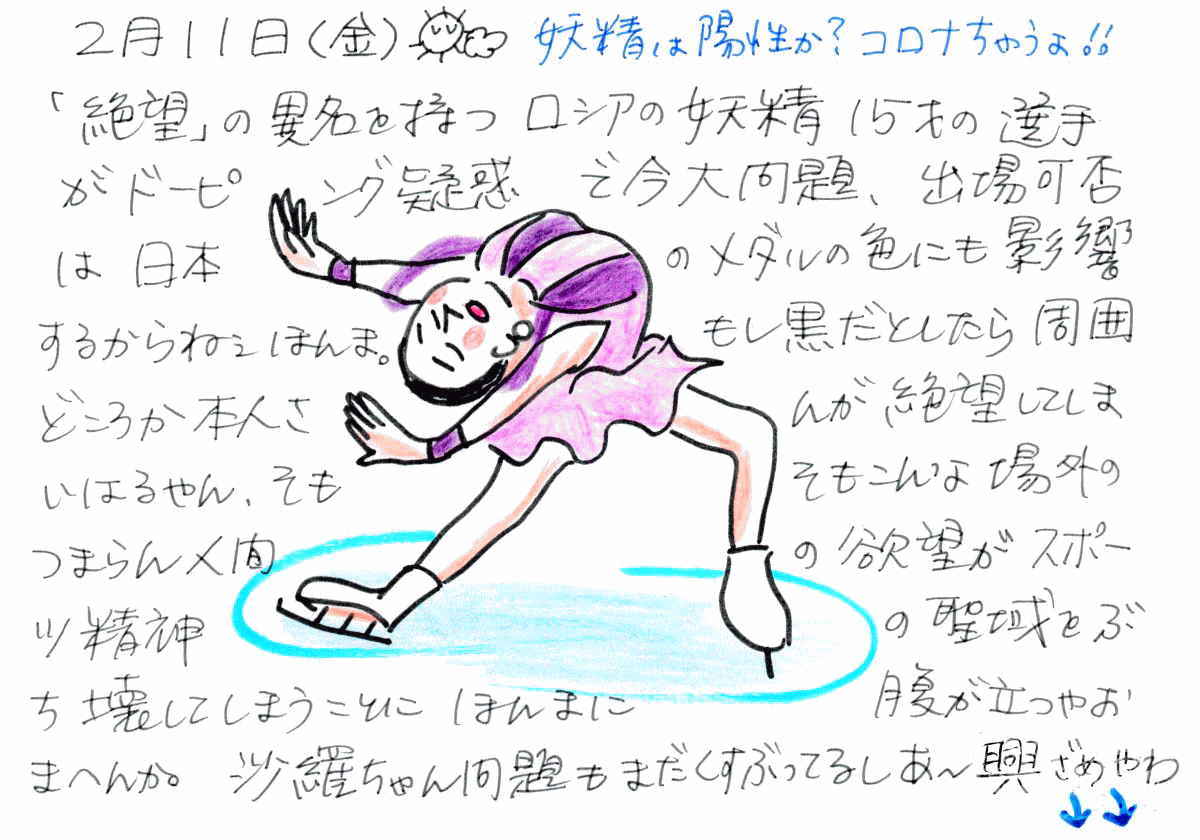 2月11日(金) 妖精は陽性か?コロナちゃうよ!!
「絶望」の異名を持つ ロシアの妖精 15才の選手
がドーピング疑惑で今大問題、出場可否
は日本のメダルの色にも影響
するからねェほんま。もし黒だとしたら周囲
どころか本人さんが絶望してしま
いはるやん、そもそもこんな場外の
つまらん人間の欲望がスポー
ツ精神の聖域をぶ
ち壊してしまうことに ほんまに腹が立つやお
まへんか。 沙羅ちゃん問題もまだくすぶってるしあ〜興ざめやわ